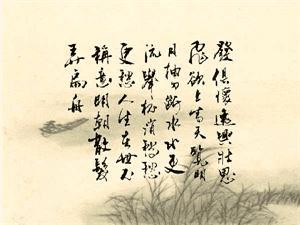 發俱懷逸興壯思
飛欲上青天覽明
月抽刀斷水水更
流舉杯消愁愁
更愁人生在世不
稱意明朝散髮
弄扁舟